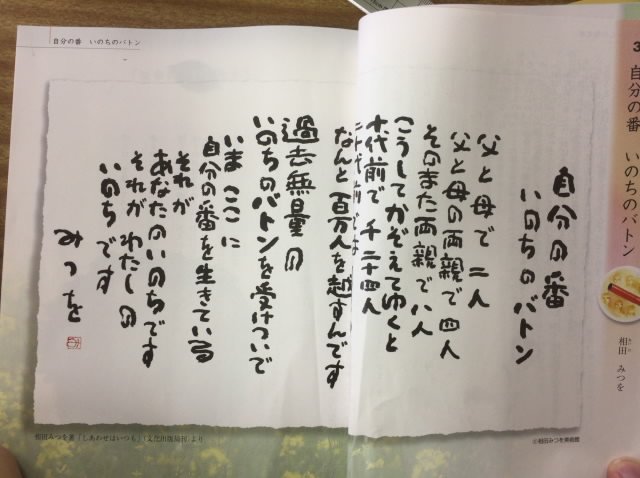 3
自分の番 いのちのバトン
相田 みつを
自分の番
いのちのバトン
父と母で 二人
父と母の両親で 四人
そのまた両親で 八人
こうしてかぞえてゆくと
十代前で 千二十四人
二十代前では
なんと 百万人を越すんです
過去無量の
いのちのバトンを受けついで
いま ここに
自分の番を生きている
それが
あなたのいのちです
それがわたしの
いのちです
みつを
©相田みつを美術館
自分の番 いのちのバトン
相田みつを著「しあわせはいつも」(文化出版局刊)より